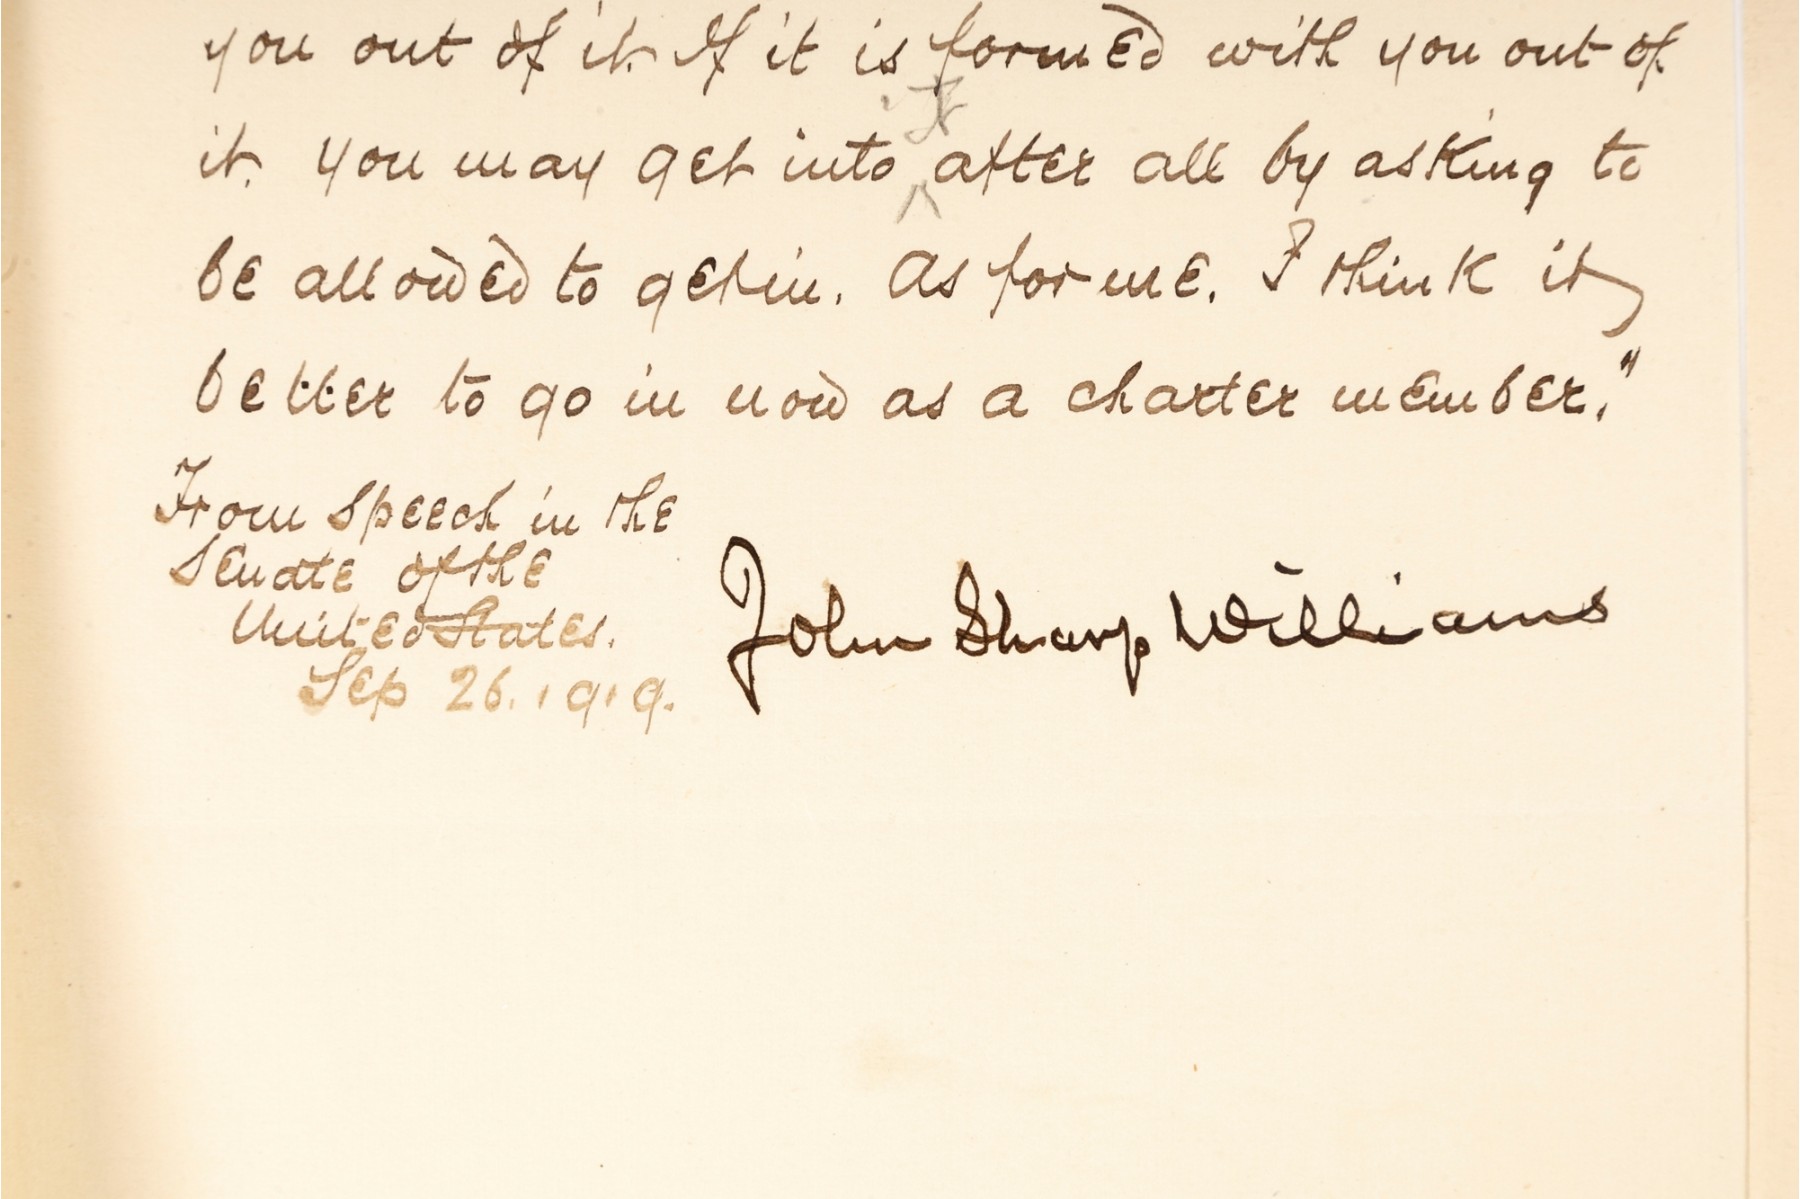 you out of it. If it is formed with you out of
it
it. you may get into ^ after all by asking to
be allowed to get in. As for me. I think it
better to go in now as a charter member."
From Speech in the
Senate of the
United States.
Sep 26. 1919.
John Sharp Williams